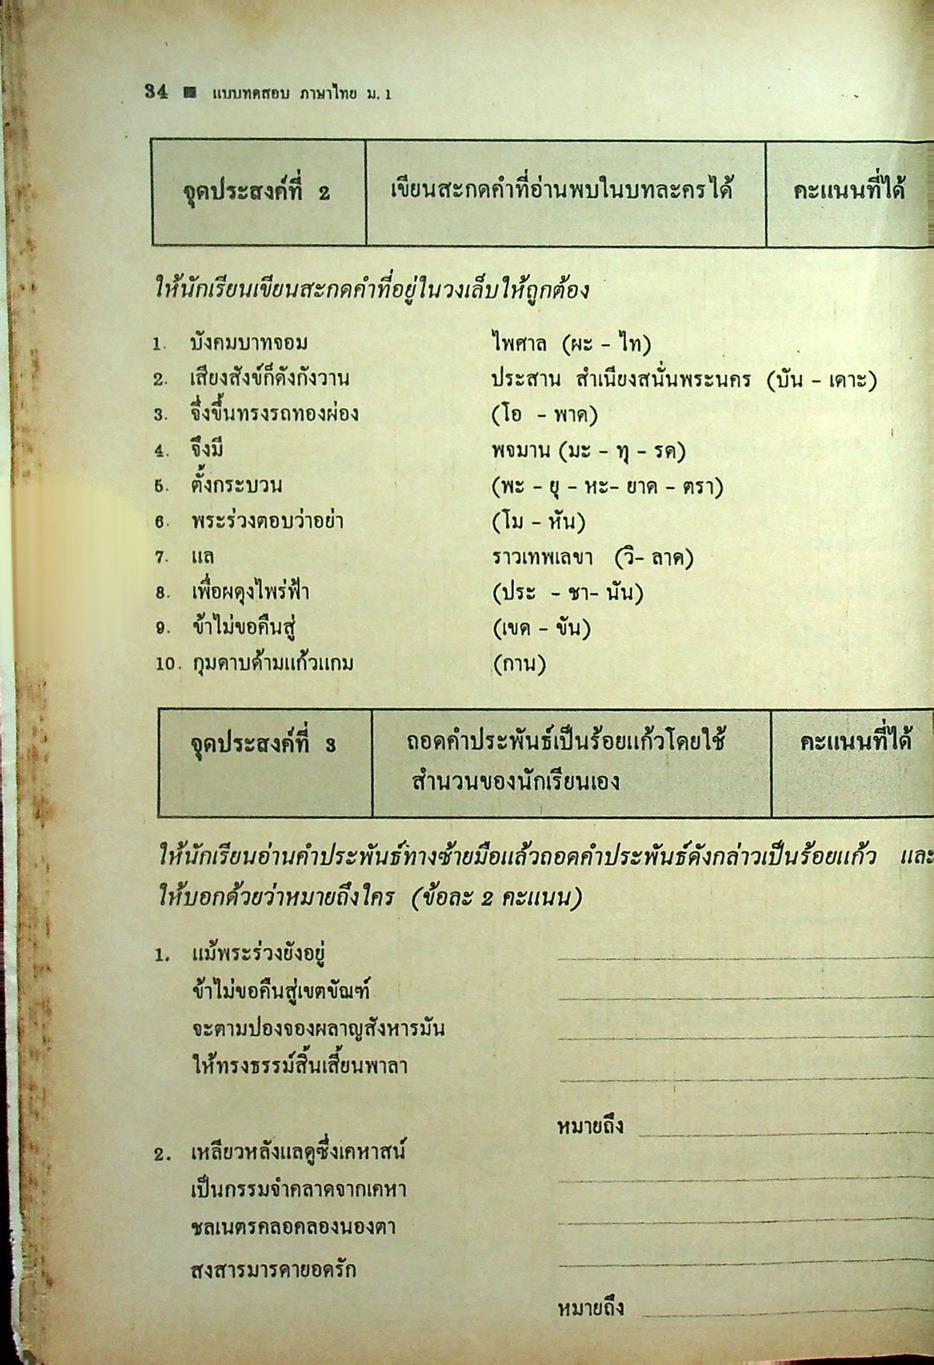 34 ■ แบบทดสอบ ภาษาไทย ม. 1
จุดประสงค์ที่ 2 เขียนสะกดคำที่อ่านพบในบทละครได้ คะแนนที่ได้
ให้นักเรียนเขียนสะกดคำที่อยู่ในวงเล็บให้ถูกต้อง
1. บังคมบาทจอม ไพศาล (ผะ - ไท)
2. เสียงสังข์ก็ดังกังวาน ประสาน สำเนียงสนั่นพระนคร (บัน - เดาะ)
3. จึ่งขึ้นทรงรถทองผ่อง (โอ - พาด)
4. จึงมี พจมาน (มะ - ทุ - รด)
5. ตั้งกระบวน (พะ - ยุ - หะ- ยาด - ตรา)
6. พระร่วงตอบว่าอย่า (โม - หัน)
7. แล ราวเทพเลขา (วิ- ลาด)
8. เพื่อผดุงไพร่ฟ้า (ประ - ชา- นัน)
9. ข้าไม่ขอคืนสู่ (เขด - ขัน)
10. กุมดาบด้ามแก้วแกม (กาน)
จุดประสงค์ที่ 3 ถอดคำประพันธ์เป็นร้อยแก้วโดยใช้ คะแนนที่ได้
สำนวนของนักเรียนเอง
ให้นักเรียนอ่านคำประพันธ์ทางซ้ายมือแล้วถอดคำประพันธ์ดังกล่าวเป็นร้อยแก้ว และ
ให้บอกด้วยว่าหมายถึงใคร (ข้อละ 2 คะแนน)
1. แม้พระร่วงยังอยู่
ข้าไม่ขอคืนสู่เขตขัณฑ์
จะตามปองจองผลาญสังหารมัน
ให้ทรงธรรม์สิ้นเสี้ยนพาลา
หมายถึง
2. เหลียวหลังแลดูซึ่งเคหาสน์
เป็นกรรมจำคลาดจากเคหา
ชลเนตรคลอคลองนองตา
สงสารมารดายอดรัก
หมายถึง